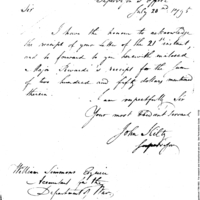 July 22nd 1795
Sir
I have the honour to acknowledge
the receipt of your letter of the 21st instant,
and to forward to you herewith enclosed
Majr Swan's receipt for the sum
of two hundred and fifty dollars mentioned
therein.
I am respectfully Sir
Your most Obedt servant
John
William Simmons Esquire
Accountant in the
Department of War